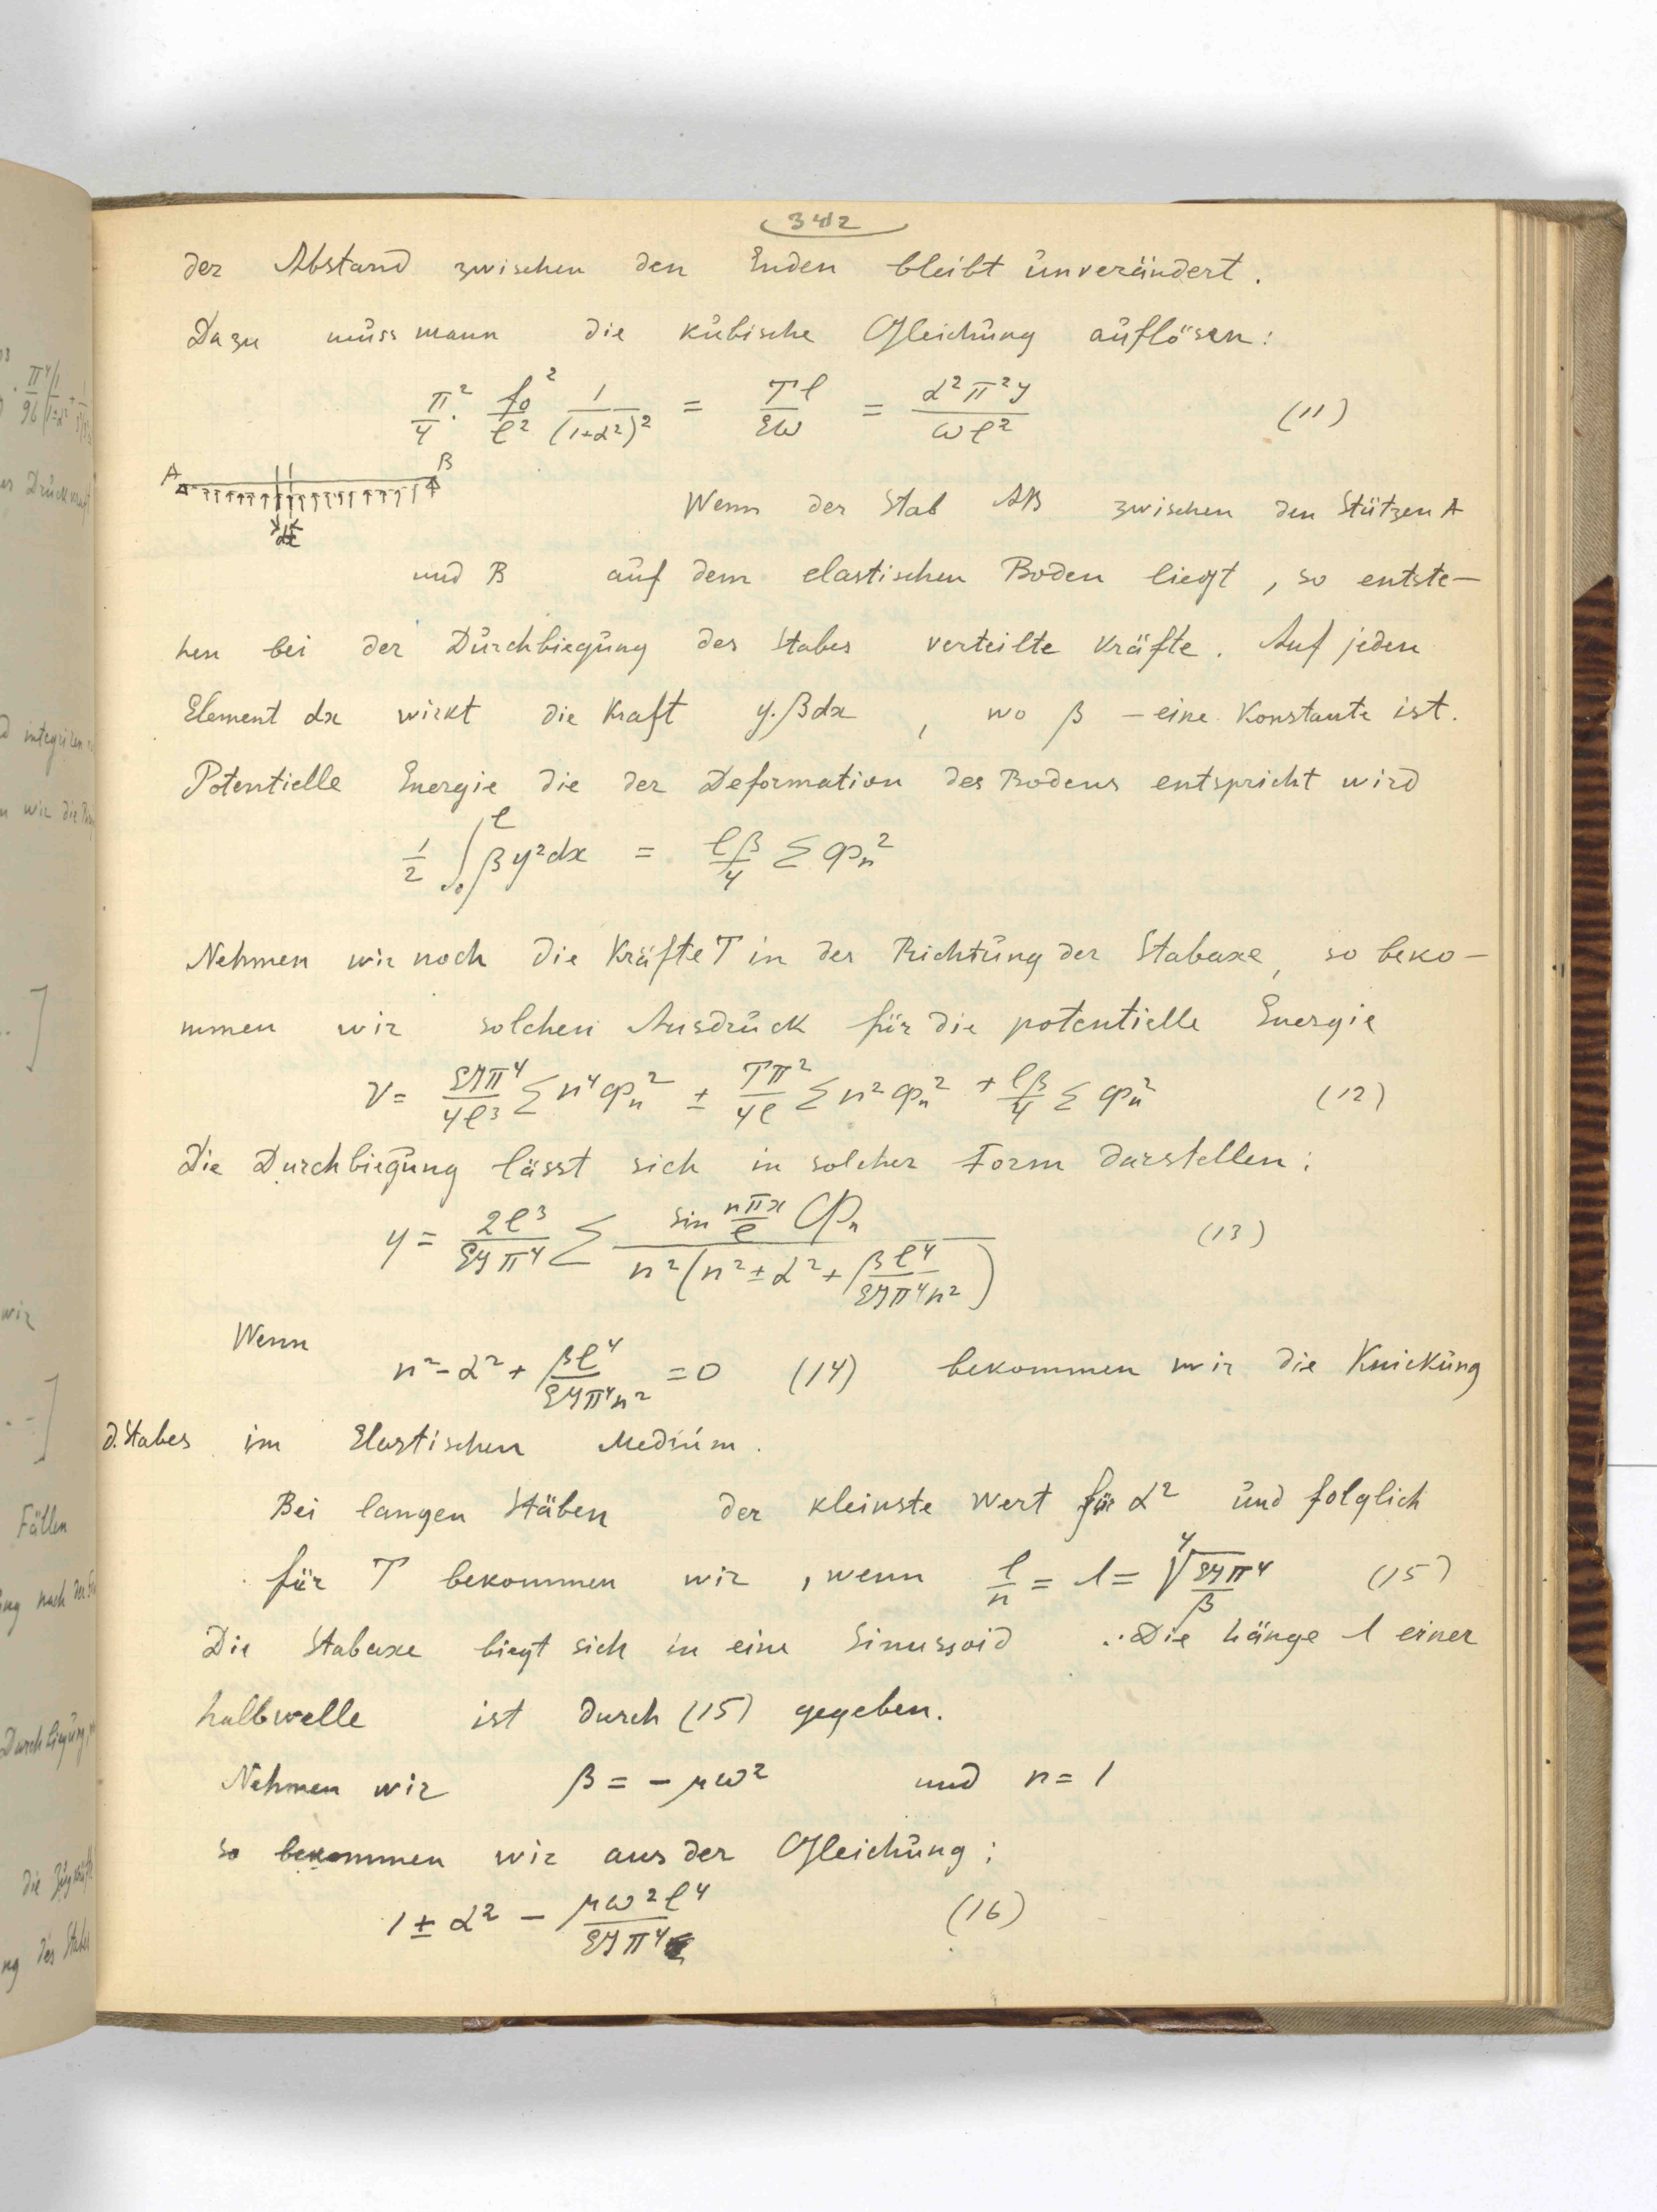 342
der Abstand zwischen den Enden bleibt unverändert.
Dazu muss mann die kubische Gleichung auflösen:
π²/4 · f₀²/ℓ² 1/(1+α²)² = Tℓ/εω = α²π²J/ωℓ² (11)
A B
dx
Wenn der Stab AB zwischen den Stützen A
und B auf dem elastischen Boden liegt, so entste-
hen bei der Durchbiegung des Stabes verteilte Kräfte. Auf jeden
Element dx wirkt die Kraft y.βdx, wo β – eine Konstante ist.
Potentielle Energie die der Deformation des Bodens entspricht wird
1/2 ∫₀^ℓ βy²dx = ℓβ/4 Σ φₙ²
Nehmen wir noch die Kräfte T in der Richtung der Stabaxe, so beko-
mmen wir solchen Ausdruck für die potentielle Energie
V = εJπ⁴/4ℓ³ Σ n⁴φₙ² ± Tπ²/4ℓ Σ n²φₙ² + ℓβ/4 Σ φₙ² (12)
Die Durchbiegung lässt sich in solcher Form darstellen:
y = 2ℓ³/εJπ⁴ Σ sin nπx/ℓ Φₙ / n²(n² ± α² + βℓ⁴/εJπ⁴n²) (13)
Wenn
n² - α² + βℓ⁴/εJπ⁴n² = 0 (14) bekommen wir die Knickung
d. Stabes im Elastischen Medium.
Bei langen Stäben der kleinste Wert für α² und folglich
für T bekommen wir, wenn ℓ/n = λ = ⁴√εJπ⁴/β (15)
Die Stabaxe biegt sich in eine Sinussoid. Die Länge λ einer
halbwelle ist durch (15) gegeben.
Nehmen wir β = - μω² und n = 1
so bekommen wir aus der Gleichung:
1 ± α² - μω²ℓ⁴/εJπ⁴ (16)